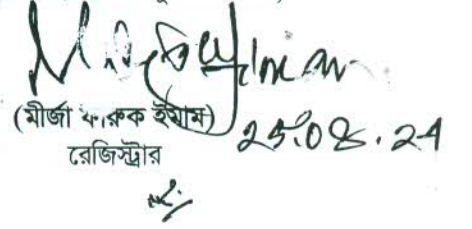 (মীর্জা ফারুক ইমাম)
25.08.24
রেজিস্ট্রার